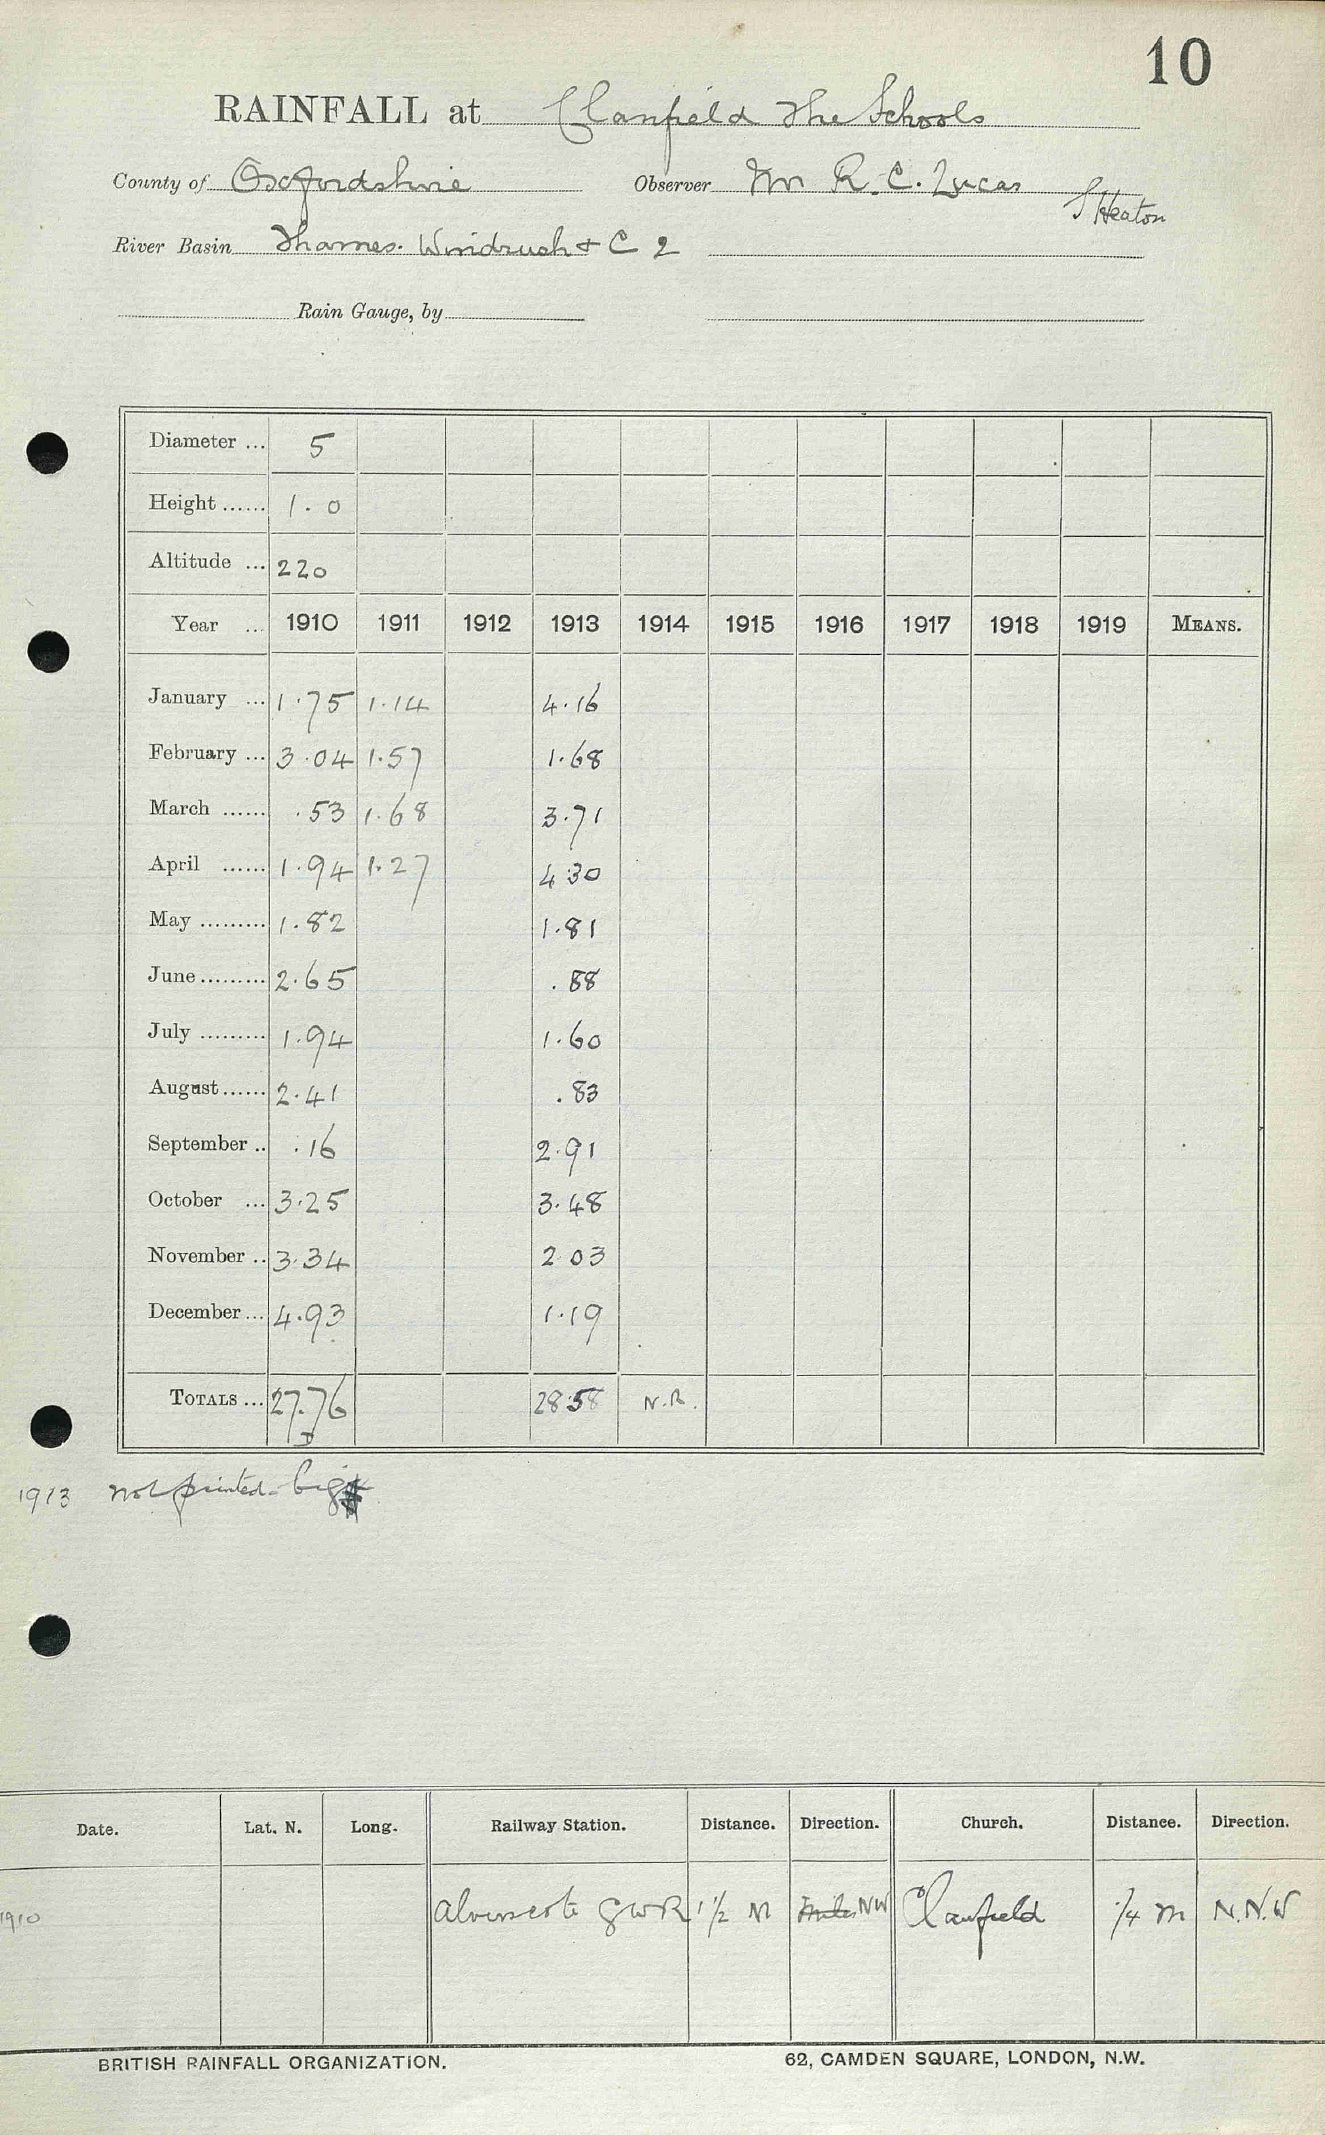 10
RAINFALL at Clanfield The Schools
County of Oxfordshire Observer Mr R. C. Lucas
S Heaton
River Basin Thames. Windrush + C 2
Rain Gauge, by
Diameter ... 5
Height ...... 1.0
Altitude ... 220
Year ... 1910 1911 1912 1913 1914 1915 1916 1917 1918 1919 MEANS.
January ... 1.75 1.14 4.16
February ... 3.04 1.57 1.68
March ...... .53 1.68 3.71
April ...... 1.94 1.27 4 30
May ......... 1.82 1.81
June ......... 2.65 .88
July ......... 1.94 1.60
August ...... 2.41 .83
September .. .16 2.91
October ... 3.25 3.48
November .. 3.34 2 03
December ... 4.93 1.19
TOTALS ... 27.76 28.58 N.R.
1913 not printed
Date. Lat. N. Long. Railway Station. Distance. Direction. Church. Distance. Direction.
1910 Alvescote GWR 1 1/2 M NW Clanfield 1/4 m N.N.W
BRITISH RAINFALL ORGANIZATION. 62, CAMDEN SQUARE, LONDON, N.W.